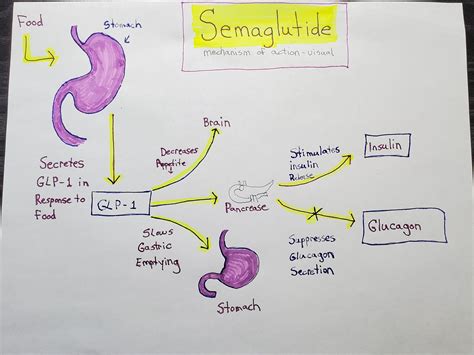 Food
Stomach
Semaglutide
mechanism of action - visual
Secretes
GLP-1 in
Response to
Food
GLP-1
Decreases
Appetite
Brain
Pancrease
Slows
Gastric
Emptying
Stomach
Stimulates
insulin
Release
Insulin
Suppresses
Glucagon
Secretion
Glucagon